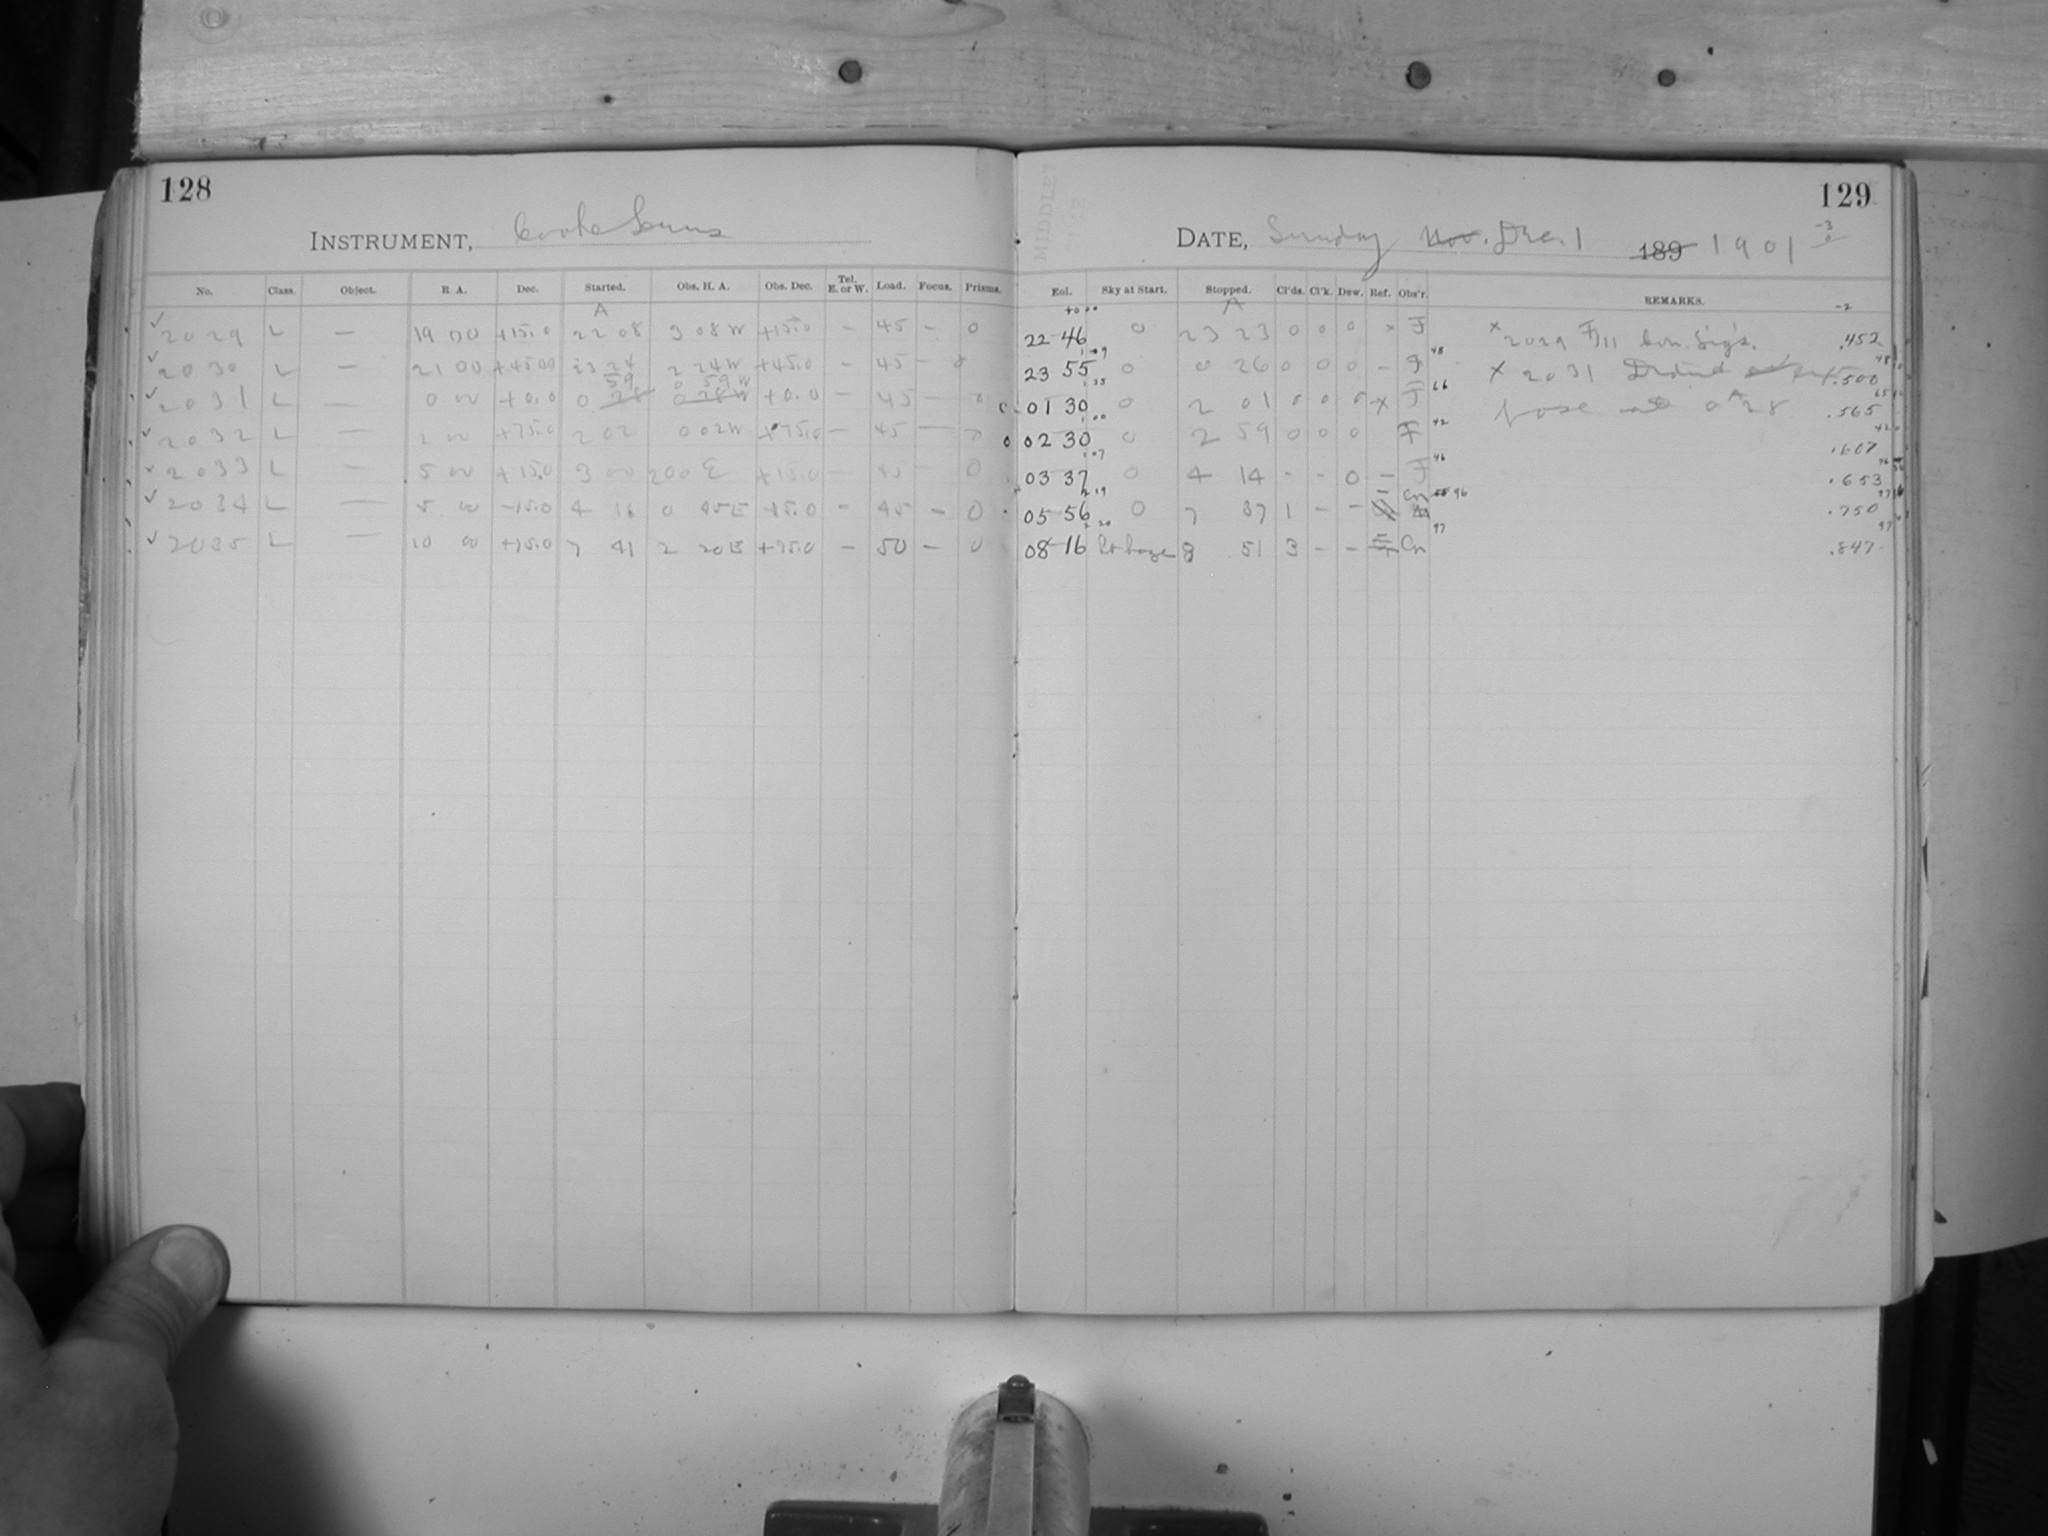 128
129
INSTRUMENT, Cooke Lens
DATE, Sunday Nov. Dec. 1 189 1901
No. Class. Object. R. A. Dec. Started. Obs. H. A. Obs. Dec. Tel. E. or W. Load. Focus. Prisms. Eql. Sky at Start. Stopped. Cl'ds. Cl'k. Dew. Ref. Obs'r. REMARKS.
2029 L — 19 00 +15.0 22 08 3 08 W +15.0 — 45 — 0 22 46 0 23 23 0 0 0 × F × 2029 .452
2030 L — 21 00 +45 00 23 24 2 24 W +45.0 — 45 — 0 23 55 0 0 26 0 0 0 — F × 2031 .500
2031 L — 0 00 +0.0 0 28 59 0 28 W 0 59 W +0.0 — 45 — 0 01 30 0 2 01 0 0 0 × F 0 28 .565
2032 L — 2 00 +75.0 2 02 0 02 W +75.0 — 45 — 0 02 30 0 2 59 0 0 0 F .607
2033 L — 5 00 +15.0 3 00 2 00 E +15.0 — 45 — 0 03 37 0 4 14 - - 0 — F .653
2034 L — 5 00 -15.0 4 16 0 45 E -15.0 — 45 — 0 05 56 0 7 37 1 - - Cn .750
2035 L — 10 00 +75.0 7 41 2 20 E +75.0 — 50 — 0 08 16 Lt haze 8 51 3 - - Cn .847